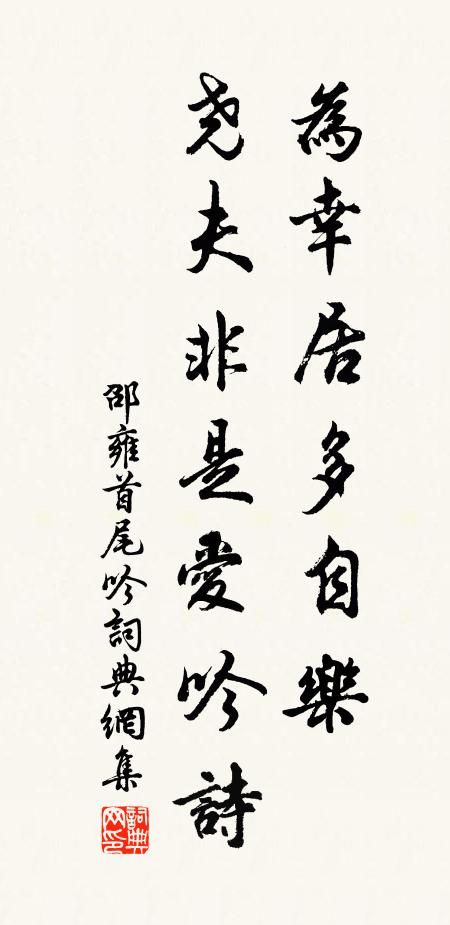 為幸居多自樂
堯夫非是愛吟詩
邵雍首尾吟詞典網集
詞典网印